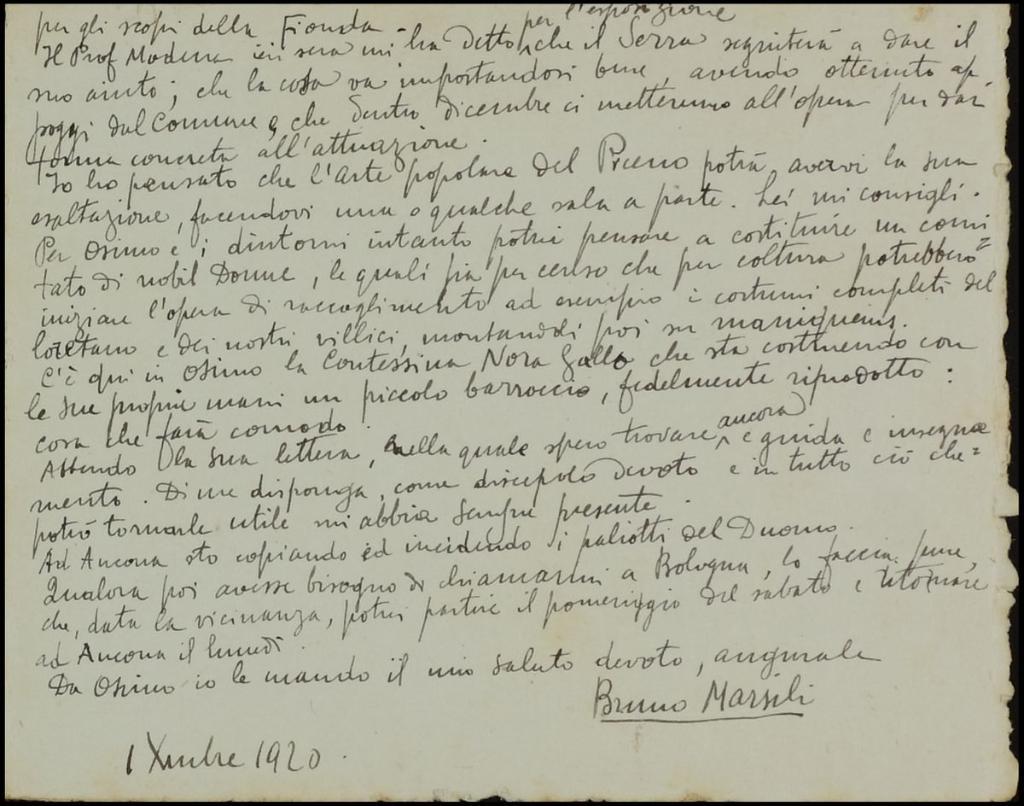 per gli scopi della Fionda
per l'esposizione
Il Prof Modena ieri sera mi ha detto che il Serra seguiterà a dare il
suo aiuto; che la cosa va impostandosi bene, avendo ottenuto ap-
poggi dal Comune e che dentro dicembre ci metteremo all'opera per dar
forma concreta all'attuazione.
Io ho pensato che l'Arte popolare del Piceno potrà avervi la sua
esaltazione, facendovi una o qualche sala a parte. Lei mi consigli.
Per Osimo e i dintorni intanto potrei pensare a costituire un comi=
tato di nobil Donne, le quali sia per censo che per coltura potrebbero
iniziare l'opera di raccoglimento ad esempio i costumi completi del
loretano e dei nostri villici, montandoli poi su maniquens.
C'è qui in Osimo la Contessina Nora Gallo che sta costruendo con
le sue proprie mani un piccolo barroccio, fedelmente riprodotto:
cosa che farà comodo.
Attendo la sua lettera, nella quale spero trovare ancora e guida e insegna
mento. Di me disponga, come discepolo devoto e in tutto ciò che=
potrò tornarle utile mi abbia sempre presente.
Ad Ancona sto copiando ed incidendo i paliotti del Duomo.
Qualora poi avesse bisogno di chiamarmi a Bologna, lo faccia pure,
che, data la vicinanza, potrei partire il pomeriggio del sabato e ritornare
ad Ancona il lunedì.
Da Osimo io le mando il mio saluto devoto, augurale
Bruno Marsili
1 Xmbre 1920.